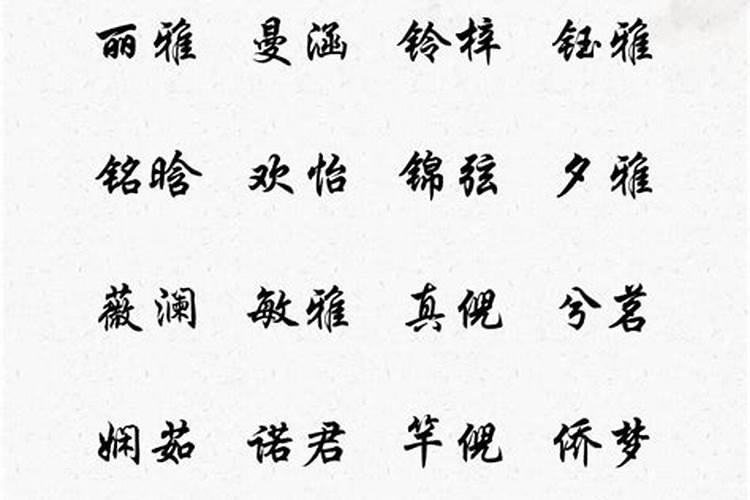 丽雅 曼涵 铃梓 钰雅
铭晗 欢怡 锦弦 夕雅
薇澜 敏雅 真倪 兮茗
娴茹 诺君 竿倪 侨梦